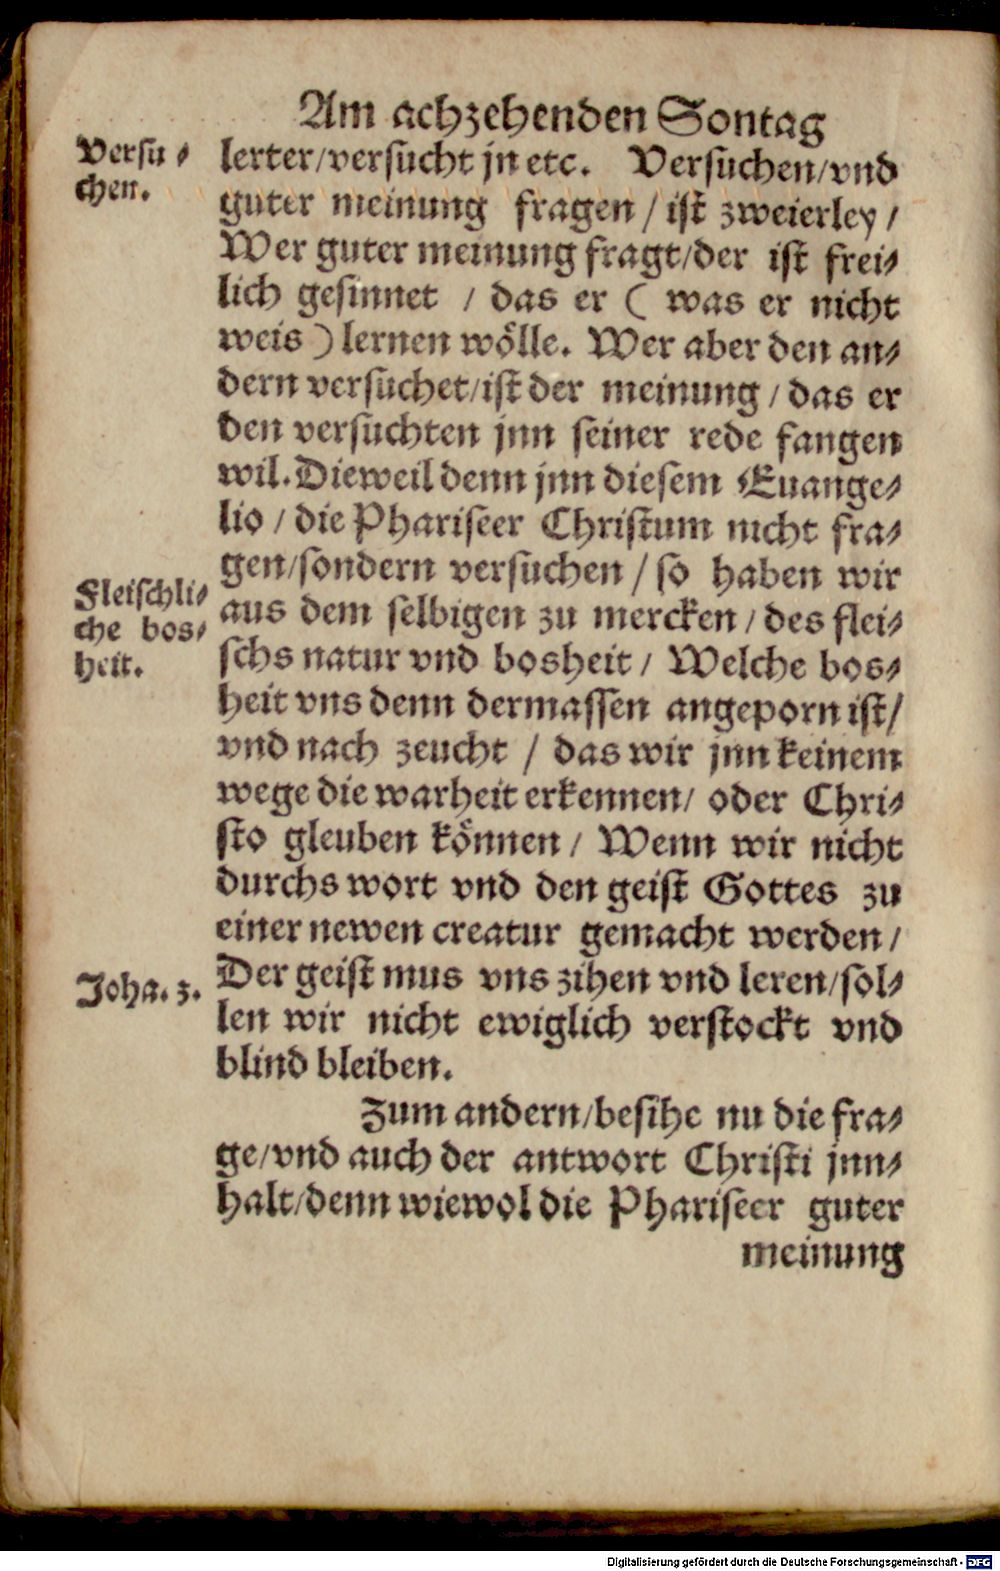 Am achzehenden Sontag
Versu⸗
chen.
lerter/versucht jn etc. Versuchen/vnd
guter meinung fragen / ist zweierley /
Wer guter meinung fragt/der ist frei⸗
lich gesinnet / das er ( was er nicht
weis ) lernen wölle. Wer aber den an⸗
dern versuchet/ist der meinung / das er
den versuchten jnn seiner rede fangen
wil. Dieweil denn jnn diesem Euange⸗
lio / die Phariseer Christum nicht fra⸗
gen/sondern versuchen / so haben wir
Fleischli⸗
che bos⸗
heit.
aus dem selbigen zu mercken / des flei⸗
schs natur vnd bosheit / Welche bos⸗
heit vns denn dermassen angeporn ist/
vnd nach zeucht / das wir jnn keinem
wege die warheit erkennen/ oder Chri⸗
sto gleuben können / Wenn wir nicht
durchs wort vnd den geist Gottes zu
einer newen creatur gemacht werden /
Joha. 3.
Der geist mus vns zihen vnd leren/sol⸗
len wir nicht ewiglich verstockt vnd
blind bleiben.
Zum andern/besihe nu die fra⸗
ge/vnd auch der antwort Christi jnn⸗
halt/denn wiewol die Phariseer guter
meinung
Digitalisierung gefördert durch die Deutsche Forschungsgemeinschaft - DFG